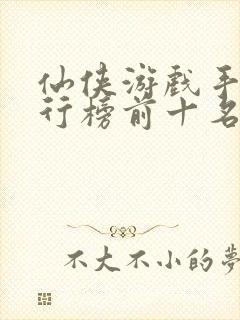 仙侠游戏手
行榜前十名
不大不小的夢